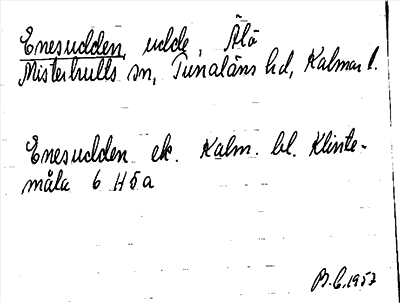 Enesudden, udde, Älö
Misterhults sn, Tunaläns hd, Kalmar l.
Enesudden ek. Kalm. bl. Klinte-
måla 6 H5a
B.C. 1957